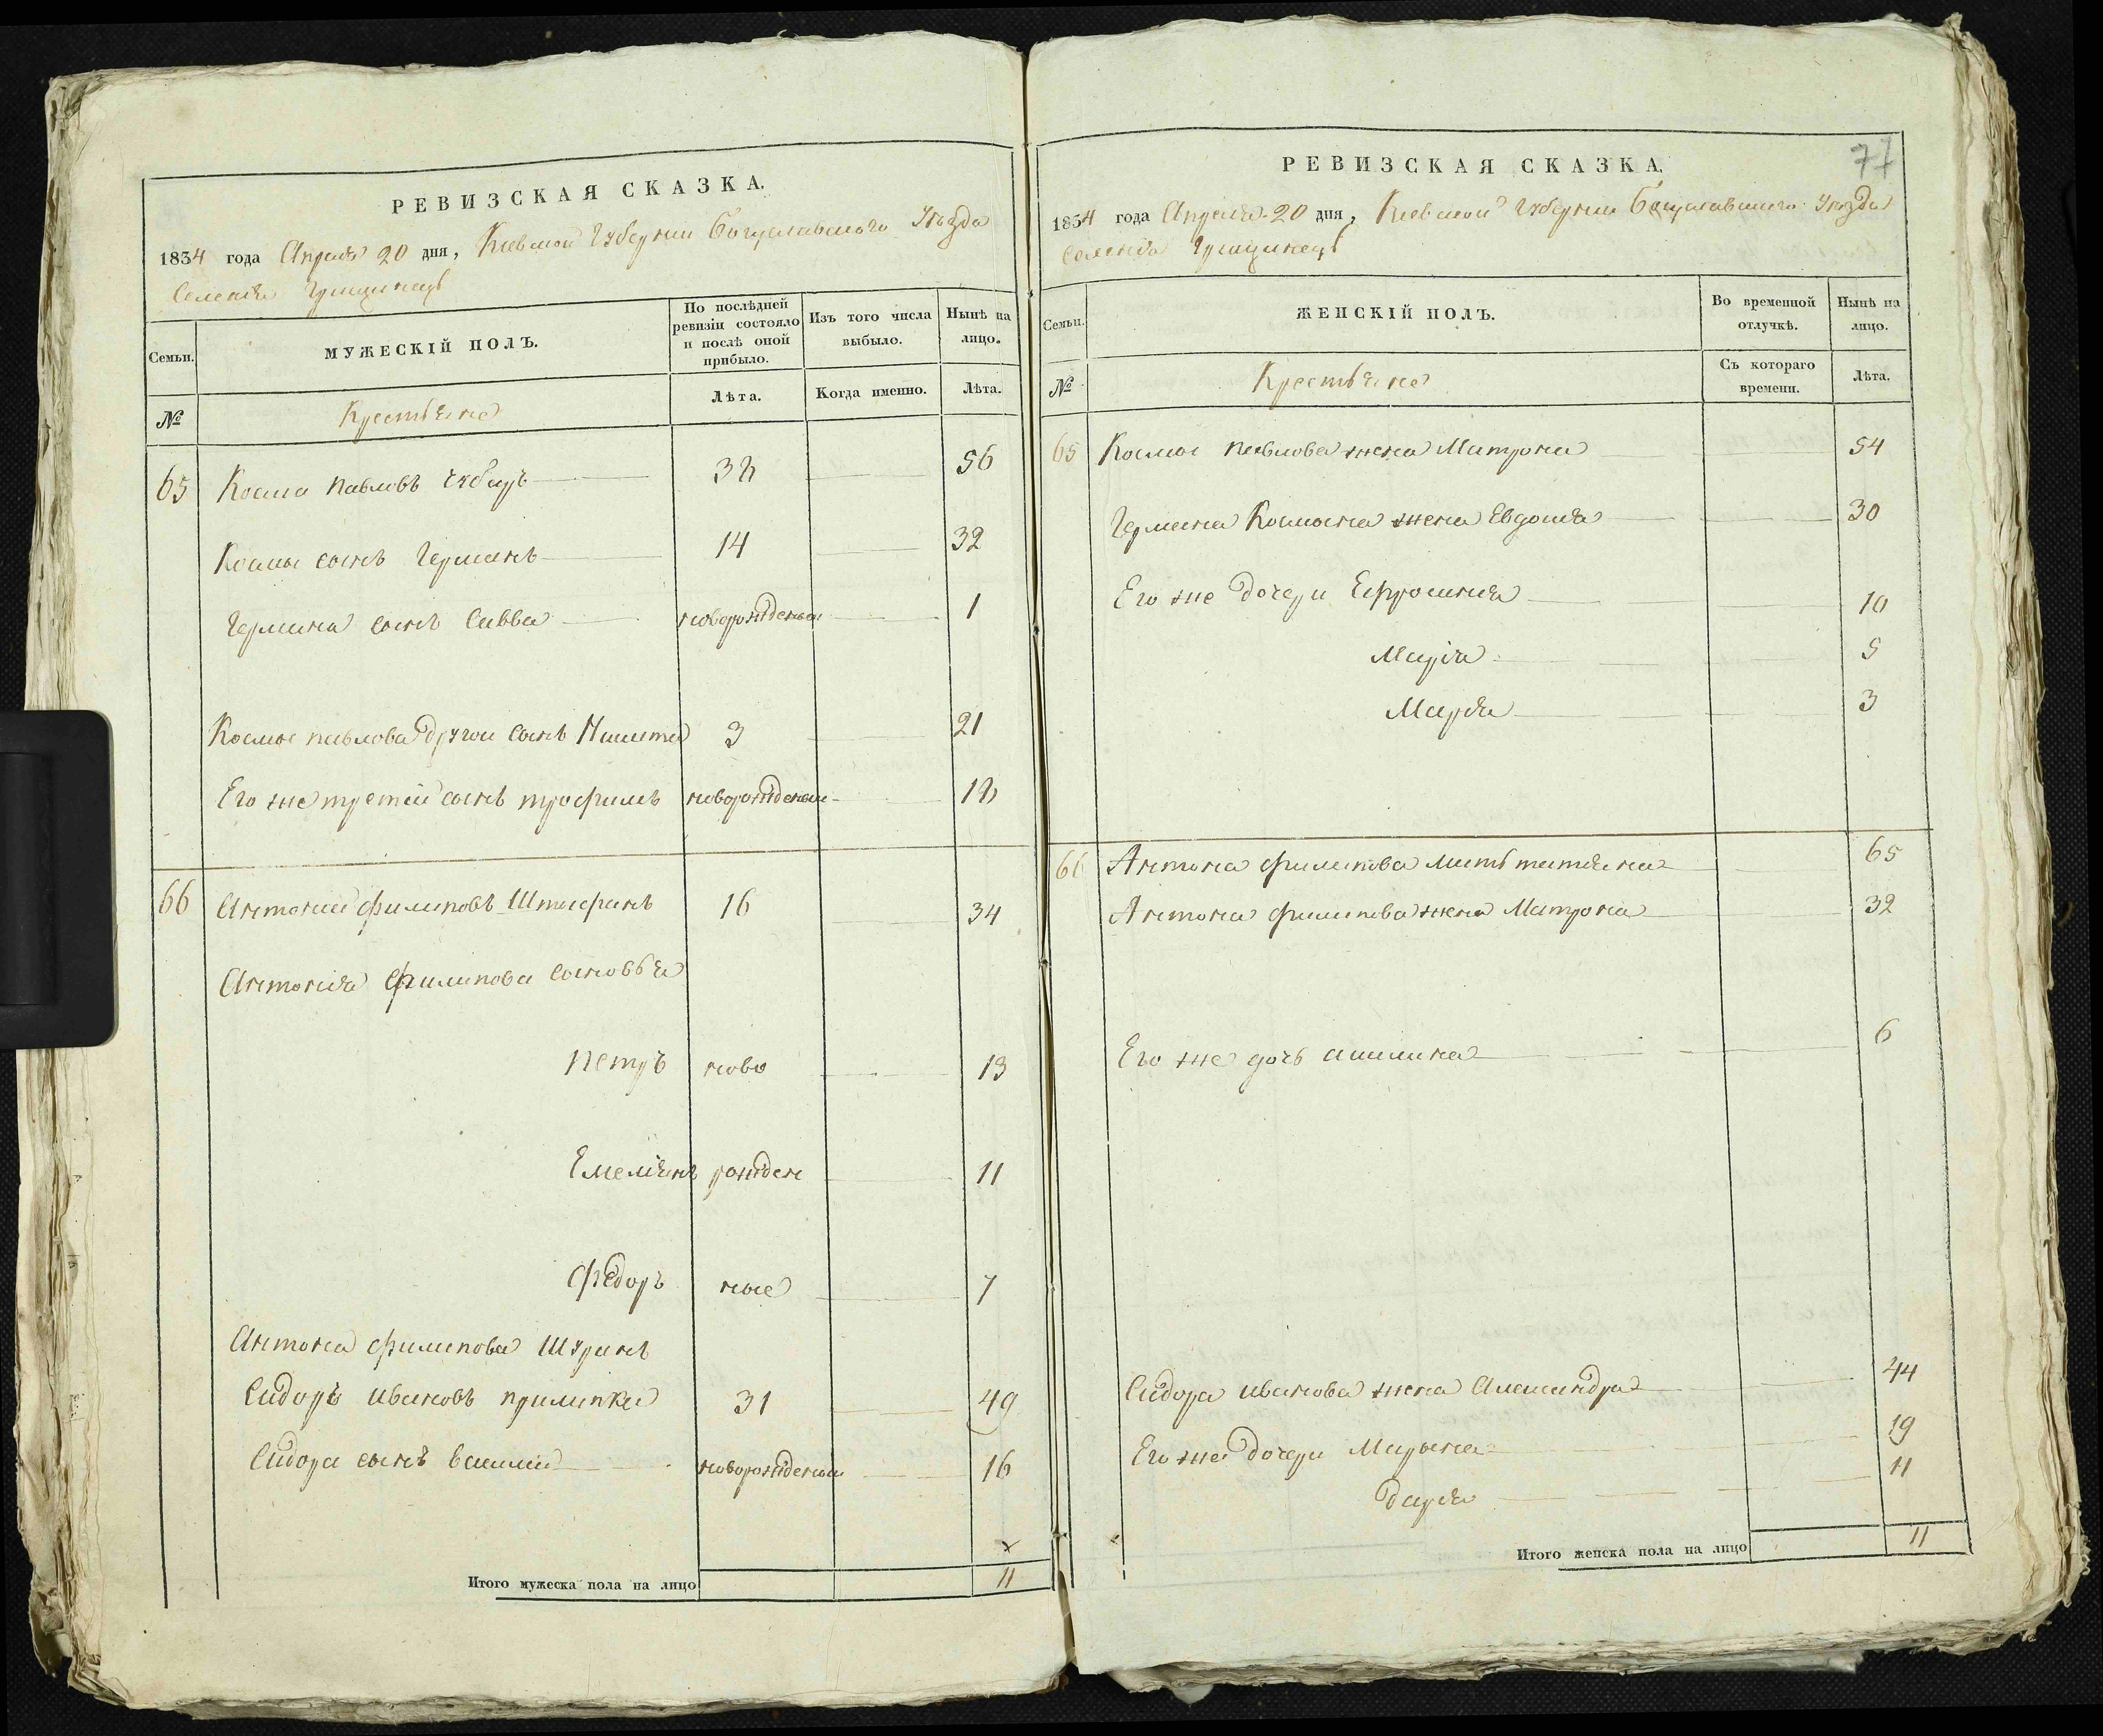 РЕВИЗСКАЯ СКАЗКА.
1834 года Апреля 20 дня, Киевской Губернии Богуславского Уезда
Селения Грищинецъ
Семьи.
МУЖЕСКІЙ ПОЛЪ.
По послѣдней ревизіи состояло и послѣ оной прибыло.
Изъ того числа выбыло.
Нынѣ на лицо.
№
Крестьяне
Лѣта.
Когда именно.
Лѣта.
65 Косма Павловъ 38 56
Космы сынъ Германъ 14 32
Германа сынъ Савва новорожденой 1
Космы павлова другой сынъ Никита 3 21
Его же третей сынъ трофимъ новорожденой 18
66 Антоний филиповъ 16 34
Антония Филипова сыновья
Петръ ново 13
Емелиянъ рожден 11
Федоръ ные 7
Антона филипова Шуринъ
Сидоръ Ивановъ прилипка 31 49
Сидора сынъ Василий новорожденой 16
Итого мужеска пола на лицо 11
77
РЕВИЗСКАЯ СКАЗКА.
1834 года Апреля 20 дня, Киевской Губернии Богуславского Уезда
Селения Грищинецъ
Семьи.
ЖЕНСКІЙ ПОЛЪ.
Во временной отлучкѣ.
Нынѣ на лицо.
№
Крестьяне
Съ котораго времени.
Лѣта.
65 Космы павлова жена Матрона 54
Германа Космина жена Евдокия 30
Его же Дочери Ефросиния 10
Марія 5
Марья 3
66 Антона филипова мать татияна 65
Антона филипова жена Матрона 32
Его же дочь акилина 6
Сидора иванова жена Александра 44
Его же дочери Марьяна 19
Дарья 11
Итого женска пола на лицо 11